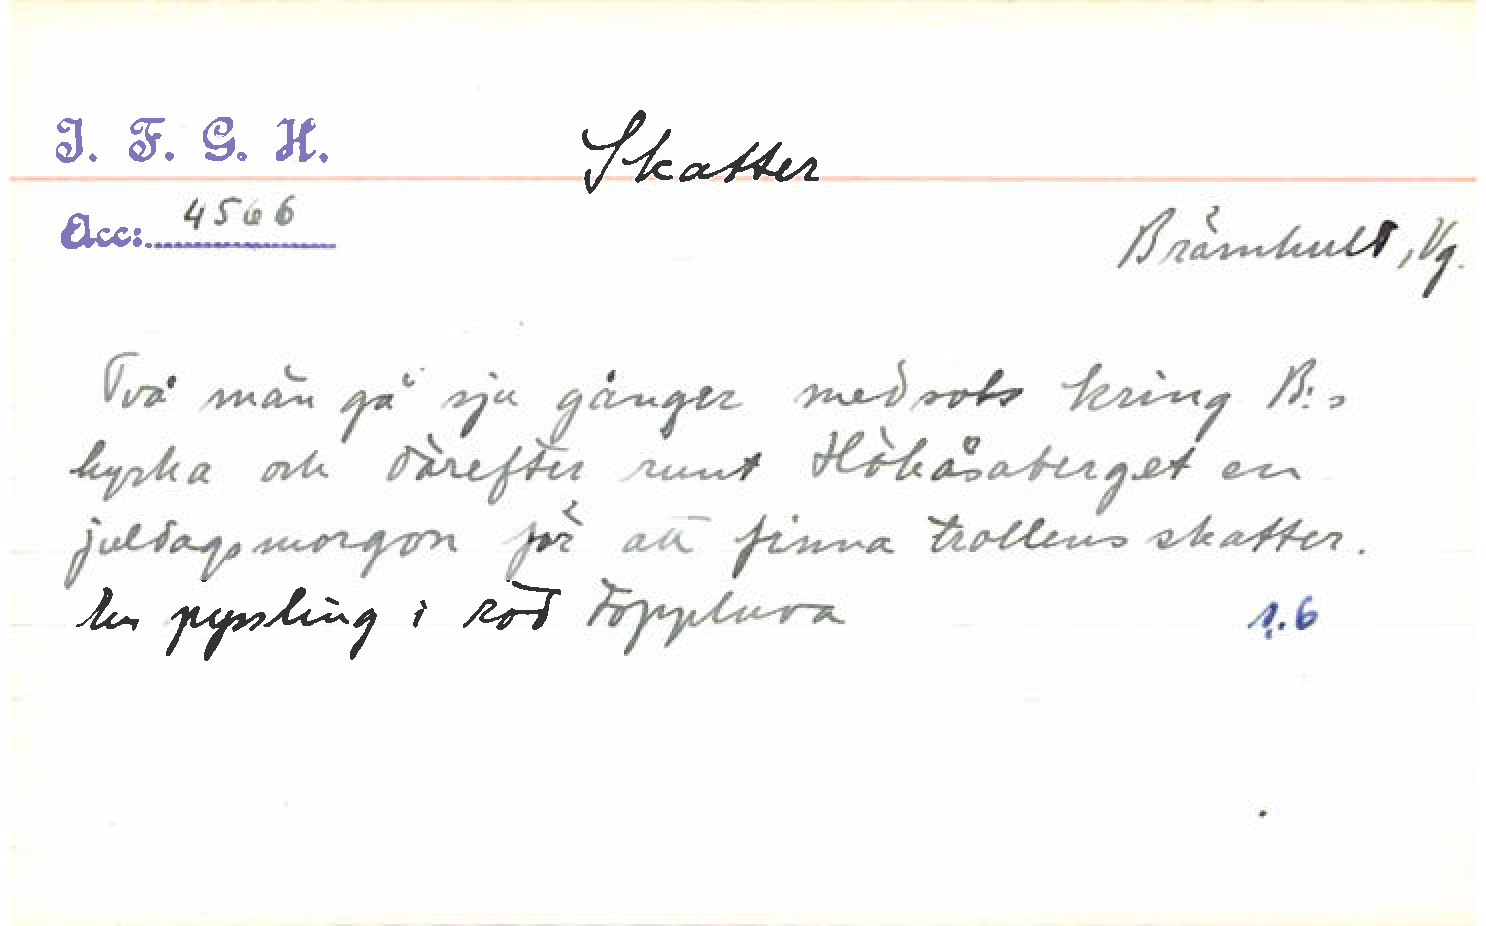 I. F. G. H.
Skatter
Acc: 4566
Brämhult, Vg.
Två män gå sju gånger medsols kring B:s
kyrka och därefter runt Hökåsaberget en
juldagsmorgon för att finna trollens skatter.
En pyssling i röd toppluva
s. 6